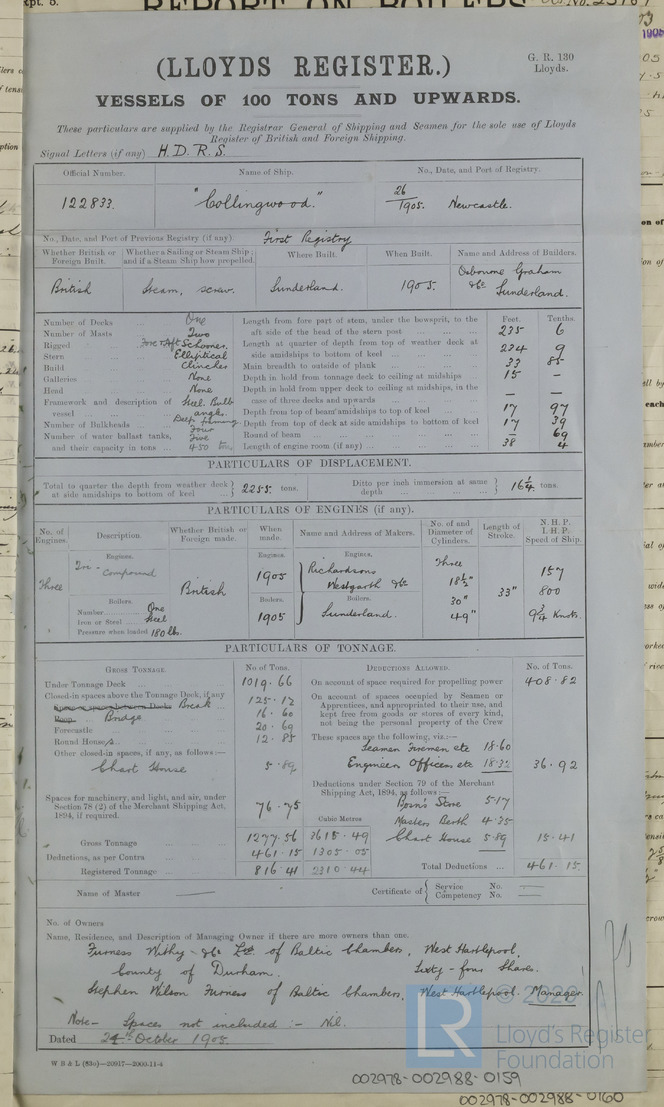 REPORT ON BOILERS
(LLOYDS REGISTER.)
G. R. 130
Lloyds.
VESSELS OF 100 TONS AND UPWARDS.
These particulars are supplied by the Registrar General of Shipping and Seamen for the sole use of Lloyds
Register of British and Foreign Shipping.
Signal Letters (if any) H.D.R.S.
Official Number. Name of Ship. No., Date, and Port of Registry.
122833. "Collingwood." 26/1905. Newcastle.
No., Date, and Port of Previous Registry (if any). First Registry
Whether British or Foreign Built. Whether a Sailing or Steam Ship; and if a Steam Ship how propelled. Where Built. When Built. Name and Address of Builders.
British Steam, screw. Sunderland. 1905. Osbourne Graham &Co Sunderland.
Number of Decks ... One
Number of Masts ... Two
Rigged ... Fore & Aft Schooner.
Stern ... Elliptical
Build ... Clincher
Galleries ... None
Head ... None
Framework and description of vessel ... Steel. Bulb angles. Deep framing
Number of Bulkheads ... Four
Number of water ballast tanks, and their capacity in tons ... Five 450 tons.
Feet. Tenths.
Length from fore part of stem, under the bowsprit, to the aft side of the head of the stern post ... 235 6
Length at quarter of depth from top of weather deck at side amidships to bottom of keel ... 234 9
Main breadth to outside of plank ... 33 85
Depth in hold from tonnage deck to ceiling at midships 15 –
Depth in hold from upper deck to ceiling at midships, in the case of three decks and upwards ... – –
Depth from top of beam amidships to top of keel 17 97
Depth from top of deck at side amidships to bottom of keel 17 39
Round of beam ... – 69
Length of engine room (if any) ... 38 4
PARTICULARS OF DISPLACEMENT.
Total to quarter the depth from weather deck at side amidships to bottom of keel ... 2255. tons.
Ditto per inch immersion at same depth ... 16¼ tons.
PARTICULARS OF ENGINES (if any).
No. of Engines. Description. Whether British or Foreign made. When made. Name and Address of Makers. No. of and Diameter of Cylinders. Length of Stroke. N. H. P. I. H. P. Speed of Ship.
Engines. Engines. Engines.
Three Tri-Compound British 1905 Richardsons Westgarth &Co Three 18½" 30" 49" 33" 157 800 9¾ Knots.
Boilers. Boilers. Boilers.
Number One 1905 Sunderland.
Iron or Steel Steel
Pressure when loaded 180 lbs.
PARTICULARS OF TONNAGE.
GROSS TONNAGE. No. of Tons.
Under Tonnage Deck ... 1019.66
Closed-in spaces above the Tonnage Deck, if any
Break ... 125.12
Bridge 16.60
Forecastle ... 20.69
Round House/s ... 12.85
Other closed-in spaces, if any, as follows:—
Chart House 5.89
Spaces for machinery, and light, and air, under Section 78 (2) of the Merchant Shipping Act, 1894, if required. 76.75
Cubic Metres
Gross Tonnage 1277.56 3615.49
Deductions, as per Contra 461.15 1305.05
Registered Tonnage ... 816.41 2310.44
DEDUCTIONS ALLOWED. No. of Tons.
On account of space required for propelling power 408.82
On account of spaces occupied by Seamen or Apprentices, and appropriated to their use, and kept free from goods or stores of every kind, not being the personal property of the Crew
These spaces are the following, viz.:—
Seamen Firemen etc 18.60
Engineer Officers etc 18.32 36.92
Deductions under Section 79 of the Merchant Shipping Act, 1894, as follows:—
Bosn's Store 5.17
Masters Berth 4.35
Chart House 5.89 15.41
Total Deductions ... 461.15
Name of Master Certificate of { Service No. Competency No.
No. of Owners
Name, Residence, and Description of Managing Owner if there are more owners than one.
Furness Withy & Co Ltd of Baltic Chambers, West Hartlepool,
County of Durham. Sixty-four Shares.
Stephen Wilson Furness of Baltic Chambers, West Hartlepool. Manager
Note – Spaces not included :– Nil.
Dated 24th October 1905.
W B & L (83o)—20917—2000-11-4
© 2020
LR
Lloyd's Register
Foundation
002978-002988-0159
002978-002988-0160